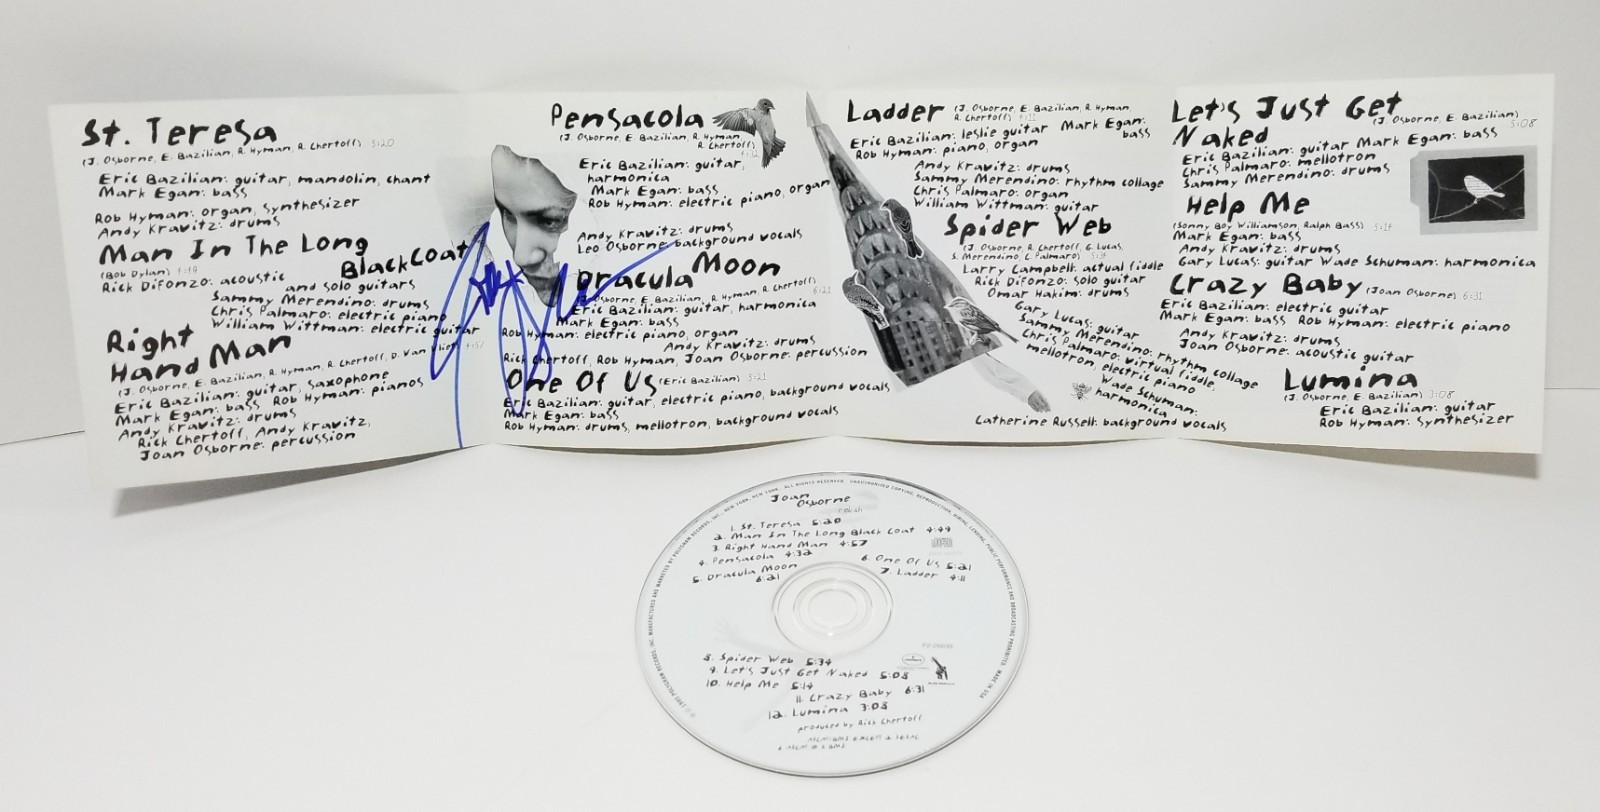 St. Teresa
(J. Osborne, E. Bazilian, R. Hyman, R. Chertoff) 5:20
Eric Bazilian: guitar, mandolin, chant
Mark Egan: bass
Rob Hyman: organ, synthesizer
Andy Kravitz: drums
Man In The Long
Black Coat
(Bob Dylan)
Rick DiFonzo: acoustic
and solo guitars
Sammy Merendino: drums
Chris Palmaro: electric piano
William Wittman: electric guitar
Right
Hand Man
(J. Osborne, E. Bazilian, R. Hyman, R. Chertoff, D. Van Vliet) 4:57
Eric Bazilian: guitar, saxophone
Mark Egan: bass Rob Hyman: pianos
Andy Kravitz: drums
Rick Chertoff, Andy Kravitz,
Joan Osborne: percussion
Pensacola
(J. Osborne, E. Bazilian, R. Hyman,
R. Chertoff)
Eric Bazilian: guitar,
harmonica
Mark Egan: bass
Rob Hyman: electric piano, organ
Andy Kravitz: drums
Leo Osborne: background vocals
Dracula Moon
(J. Osborne, E. Bazilian, R. Hyman, R. Chertoff) 6:21
Eric Bazilian: guitar, harmonica
Mark Egan: bass
Rob Hyman: electric piano, organ
Andy Kravitz: drums
Rick Chertoff, Rob Hyman, Joan Osborne: percussion
One Of Us (Eric Bazilian) 5:21
Eric Bazilian: guitar, electric piano, background vocals
Mark Egan: bass
Rob Hyman: drums, mellotron, background vocals
Ladder (J. Osborne, E. Bazilian, R. Hyman,
R. Chertoff) 4:11
Eric Bazilian: leslie guitar Mark Egan:
bass
Rob Hyman: piano, organ
Andy Kravitz: drums
Sammy Merendino: rhythm collage
Chris Palmaro: organ
William Wittman: guitar
Spider Web
(J. Osborne, R. Chertoff, G. Lucas,
S. Merendino, C. Palmaro) 5:34
Larry Campbell: actual fiddle
Rick DiFonzo: solo guitar
Omar Hakim: drums
Gary Lucas: guitar
Sammy Merendino: rhythm collage
Chris Palmaro: virtual fiddle,
mellotron, electric piano
Wade Schuman:
harmonica
Catherine Russell: background vocals
Let's Just Get
Naked
(J. Osborne, E. Bazilian)
5:08
Eric Bazilian: guitar Mark Egan: bass
Chris Palmaro: mellotron
Sammy Merendino: drums
Help Me
(Sonny Boy Williamson, Ralph Bass) 5:14
Mark Egan: bass
Andy Kravitz: drums
Gary Lucas: guitar Wade Schuman: harmonica
Crazy Baby (Joan Osborne) 6:31
Eric Bazilian: electric guitar
Mark Egan: bass Rob Hyman: electric piano
Andy Kravitz: drums
Joan Osborne: acoustic guitar
Lumina
(J. Osborne, E. Bazilian) 3:08
Eric Bazilian: guitar
Rob Hyman: synthesizer
Joan
Osborne
relish
1. St. Teresa 5:20
2. Man In The Long Black Coat 4:49
3. Right Hand Man 4:57
4. Pensacola 4:32
5. Dracula Moon
6:21
6. One Of Us 5:21
7. Ladder 4:11
8. Spider Web 5:34
9. Let's Just Get Naked 5:08
10. Help Me 5:14
11. Crazy Baby 6:31
12. Lumina 3:08
produced by Rick Chertoff
MANUFACTURED AND MARKETED BY POLYGRAM RECORDS, INC., NEW YORK, NEW YORK. ALL RIGHTS RESERVED. UNAUTHORIZED COPYING, REPRODUCTION, HIRING, LENDING, PUBLIC PERFORMANCE AND BROADCASTING PROHIBITED. MADE IN USA
1995 POLYGRAM RECORDS, INC.